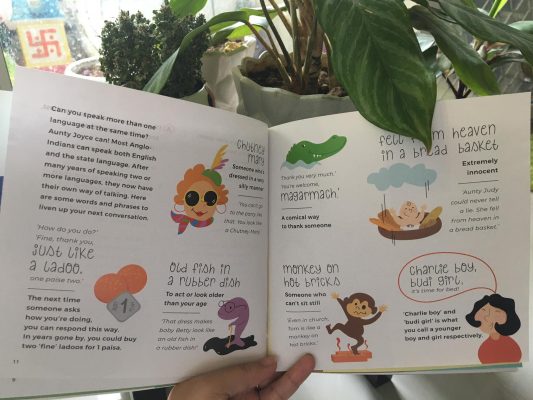 Can you speak more than one
language at the same time?
Aunty Joyce can! Most Anglo-
Indians can speak both English
and the state language. After
many years of speaking two or
more languages, they now have
their own way of talking. Here
are some words and phrases to
liven up your next conversation.
'How do you do?'
'Fine, thank you,
just like
a ladoo,
one paise two.'
The next time
someone asks
how you're doing,
you can respond this way.
In years gone by, you could buy
two 'fine' ladoos for 1 paisa.
Chutney
Mary
Someone who's
dressed in a very
silly manner
'You can't go
to the party like
that. You look like
a Chutney Mary.'
Old fish in
a rubber dish
To act or look older
than your age
'That dress makes
baby Betty look like
an old fish in
a rubber dish!'
11
Thank you very much.'
'You're welcome,
magarmach.'
A comical way
to thank someone
Fell from heaven
in a bread basket
Extremely
innocent
'Aunty Judy
could never tell
a lie. She fell
from heaven in
a bread basket.'
Monkey on
hot bricks
Someone who
can't sit still
'Even in church,
Tom is like a
monkey on
hot bricks.'
Charlie boy,
budi girl,
it's time for bed!
'Charlie boy' and
'budi girl' is what
you call a younger
boy and girl respectively.